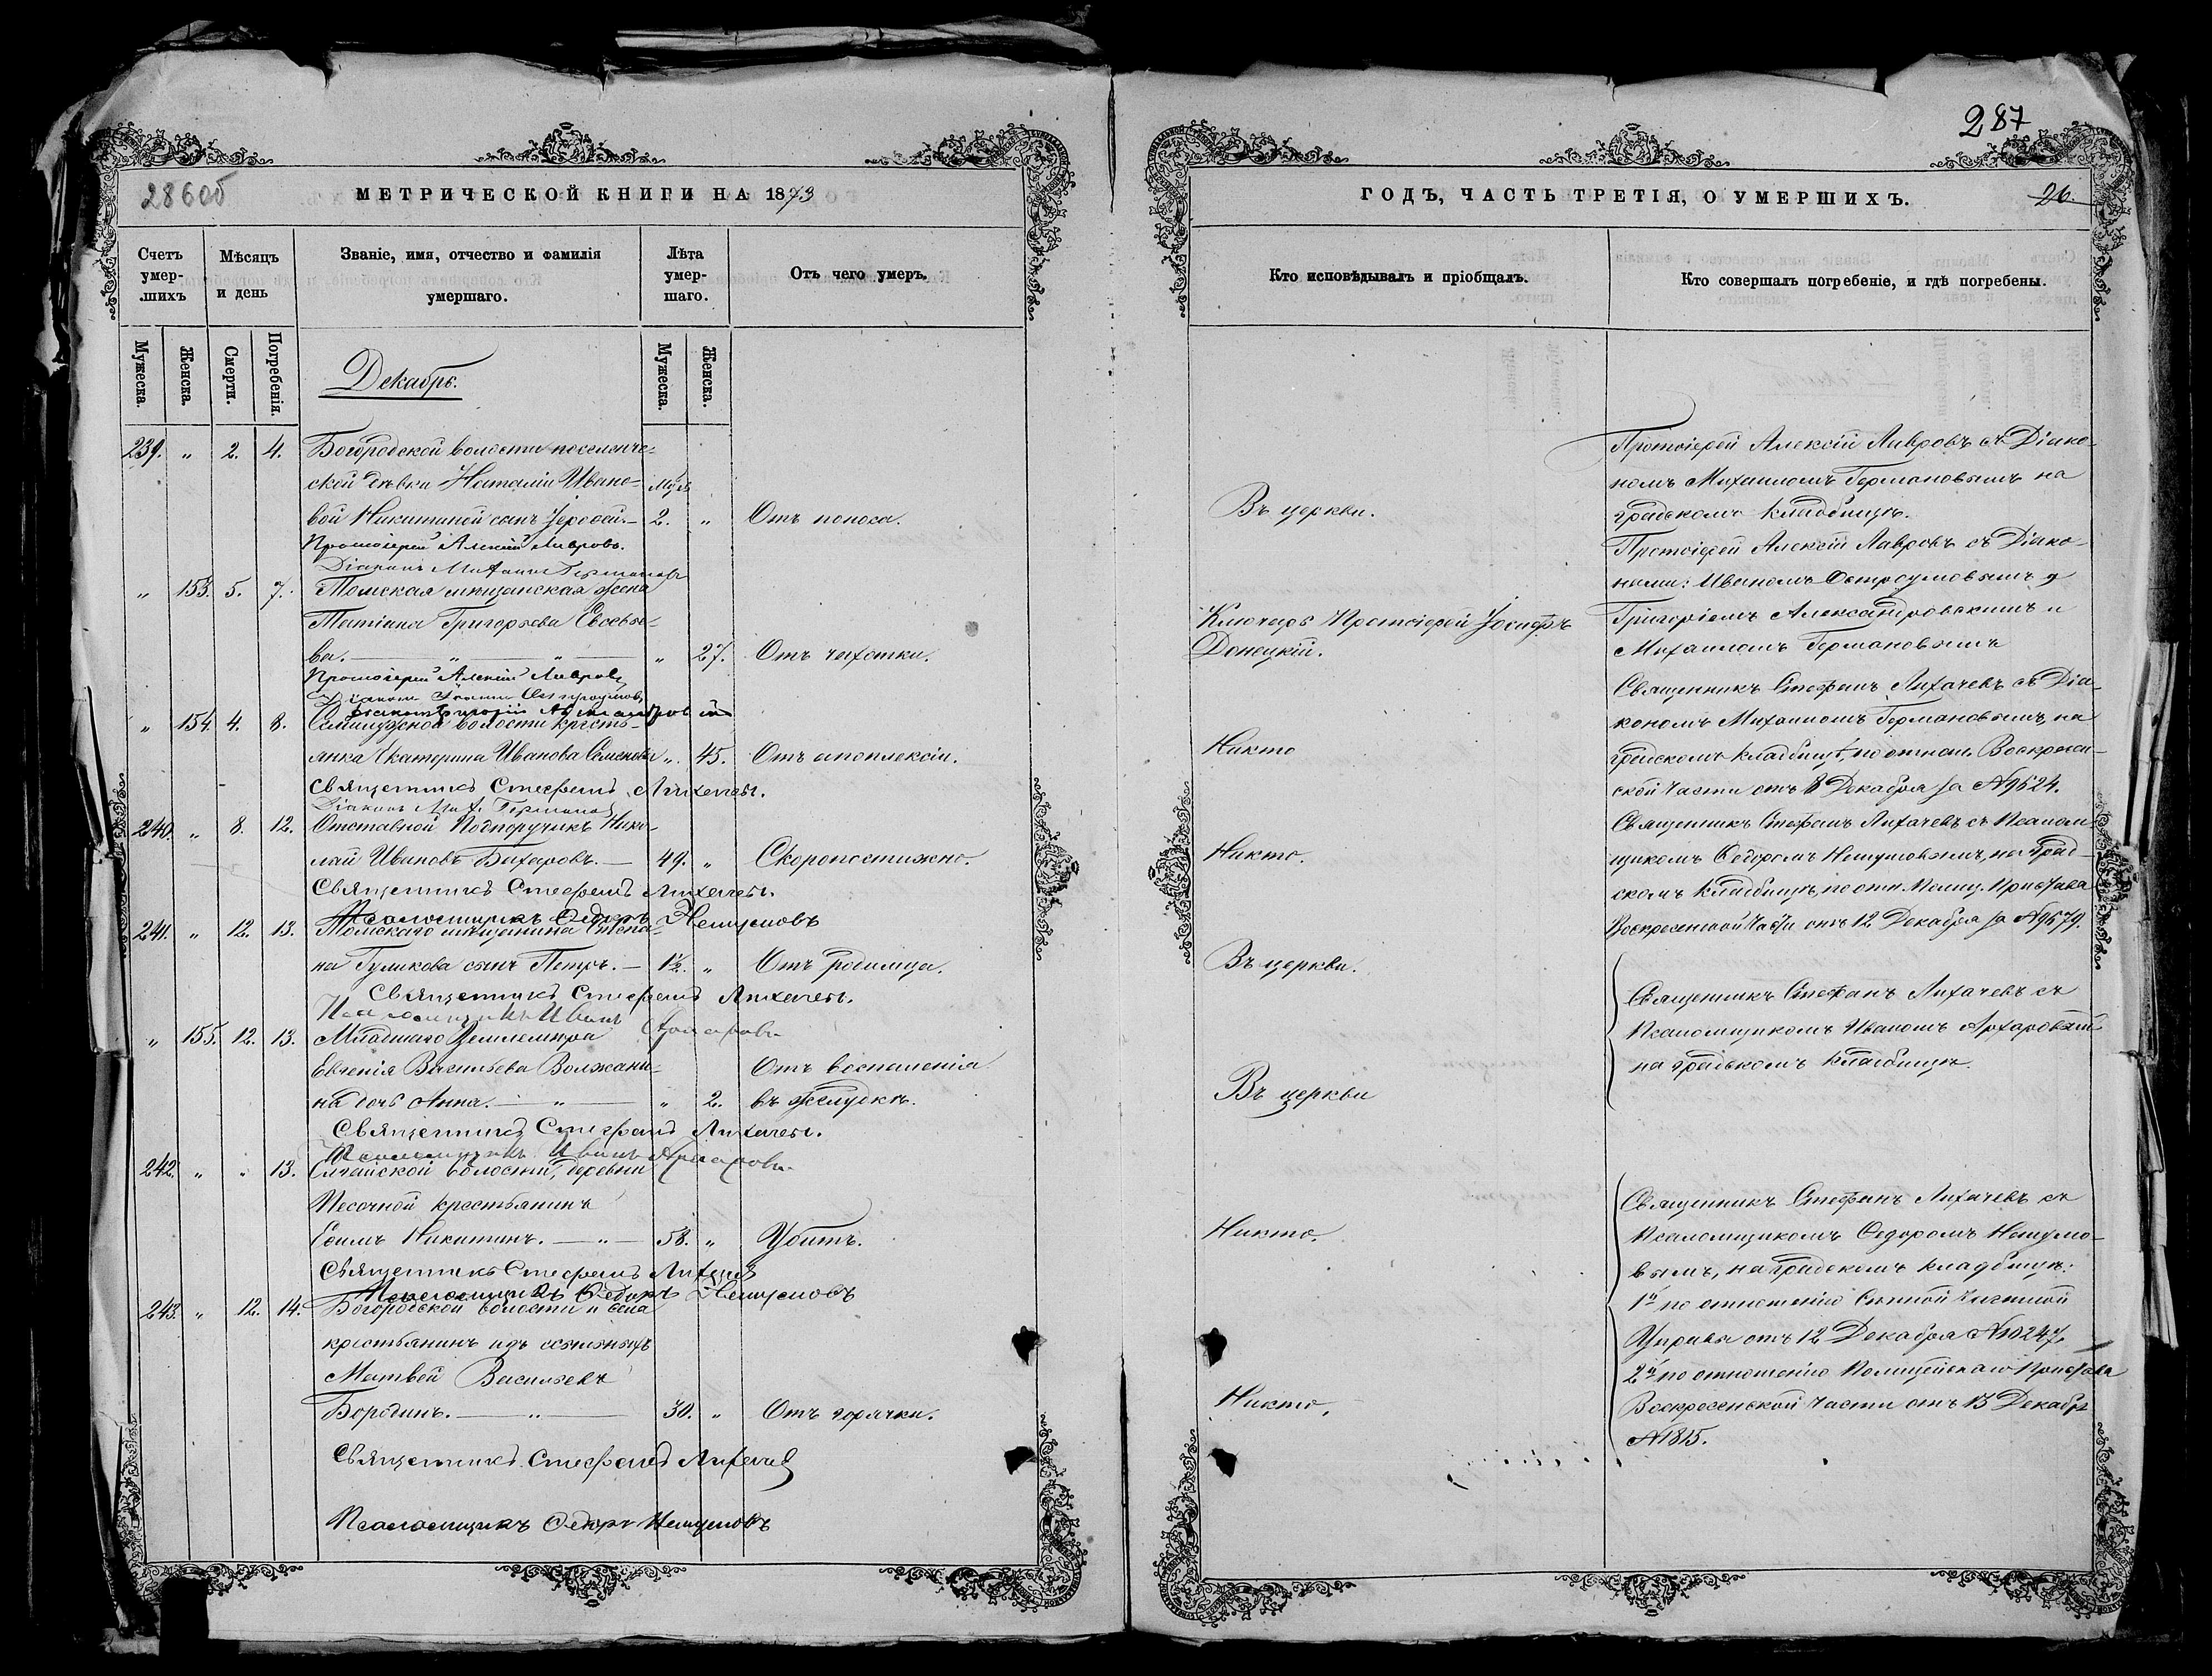 286об
МЕТРИЧЕСКОЙ КНИГИ НА 1873
Счетъ умер-шихъ
Мѣсяцъ и день
Званіе, имя, отчество и фамилія умершаго.
Лѣта умер-шаго.
Отъ чего умеръ.
Мужеска.
Женска.
Смерти.
Погребенія.
Мужеска.
Женска.
Декабрь.
239. " 2. 4. Богородской волости поселенче-
ской дѣвки Наталіи Ивано-
вой Никитиной сынъ 2. " Отъ поноса.
Протоіерей Алексій Лавровъ.
Діаконъ Михаилъ Германовъ
" 153. 5. 7. Томская мѣщанская жена
Татіана Григорьева Евсевье-
ва. " " " 27. Отъ чахотки.
Протоіерей Алексій Лавровъ
Діаконъ Іоаннъ Остроумовъ
Діаконъ Григорій
" 154. 4. 8. волости кресть-
янка Екатерина Иванова Семенова ". 45. Отъ апоплексіи.
Священникъ Стефанъ Лихачевъ.
Діаконъ Мих. Германовъ
240. " 8. 12. Отставной Подпоручикъ Нико-
лай Ивановъ Бахаровъ. 49. " Скоропостижно.
Священникъ Стефанъ Лихачевъ.
Псаломщикъ Ѳедоръ Немусовъ
241. " 12. 13. Томскаго мѣщанина Степа-
на Гуликова сынъ Петръ. 1½. " Отъ родимца.
Священникъ Стефанъ Лихачевъ.
Псаломщикъ Иванъ
" 155. 12. 13. Младшаго Землемѣра
Евгенія Васильева Волжани- Отъ воспаленія
на дочь Анна. " " 2. въ желудкѣ.
Священникъ Стефанъ Лихачевъ.
Псаломщикъ Иванъ
242. " " 13. волости, деревни
Песочной крестьянинъ
Ефимъ Никитинъ. " 58. " Убитъ.
Священникъ Стефанъ Лихачевъ
Псаломщикъ Ѳедоръ
243. " 12. 14. Богородской волости и села
крестьянинъ изъ ссыльныхъ
Матвей Васильевъ
Бородинъ. " 30. " Отъ горячки.
Священникъ Стефанъ Лихачев
Псаломщикъ Ѳедоръ
287
ГОДЪ, ЧАСТЬ ТРЕТІЯ, О УМЕРШИХЪ.
26.
Кто исповѣдывалъ и пріобщалъ.
Кто совершалъ погребеніе, и гдѣ погребены.
Протоіерей Алексій Лавровъ съ Діако-
номъ Михаиломъ Германовымъ на
Въ церкви. градскомъ кладбищѣ.
Протоіерей Алексій Лавровъ съ Діако-
нами: Иваномъ Остроумовымъ,
Ключарь Протоіерей Іосифъ Григоріемъ Александровскимъ и
Донецкій. Михаиломъ Германовымъ
Священникъ Стефанъ Лихачевъ съ Діа-
кономъ Михаиломъ Германовымъ, на
Никто градскомъ кладбищѣ, по отнош. Воскресен-
ской Части отъ 8 Декабря за №9624.
Священникъ Стефанъ Лихачевъ съ Псалом-
Никто. щикомъ Ѳедоромъ на град-
скомъ кладбищѣ, по отн. Полиц. Пристава
Воскресенской Части отъ 12 Декабря за №9679.
Въ церкви.
Священникъ Стефанъ Лихачевъ съ
Псаломщикомъ Иваномъ
на градскомъ кладбищѣ.
Въ церкви
Священникъ Стефанъ Лихачевъ съ
Никто. Псаломщикомъ Ѳедоромъ
вымъ, на градскомъ кладбищѣ:
1й по отношенію Сѣнной Частной
Управы отъ 12 Декабря №10247,
2й по отношенію Полицейскаго Пристава
Никто. Воскресенской Части отъ 13 Декабр
№1815.